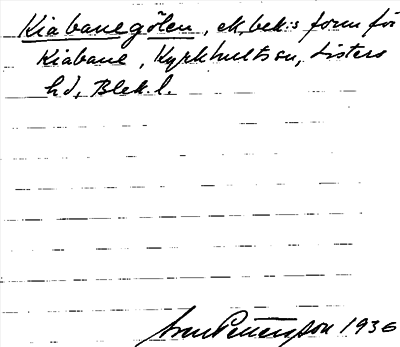 Kiabanegölen, ek. bek:s form för
Kiabane, Kyrkhults sn, Listers
hd, Blek. l.
Sven Pettersson 1936